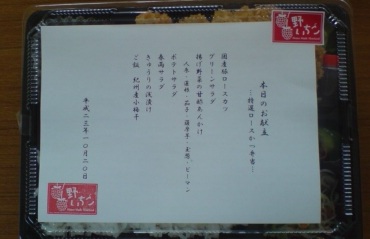 本日のお献立
―特選ロースかつ弁当―
国産豚ロースカツ
グリーンサラダ
揚げ野菜の甘酢あんかけ
人参・蓮根・茄子・薩摩芋・玉葱・ピーマン
ポテトサラダ
春雨サラダ
きゅうりの浅漬け
ご飯 紀州産小梅干
平成二三年一〇月二〇日
野いちご
野いちご